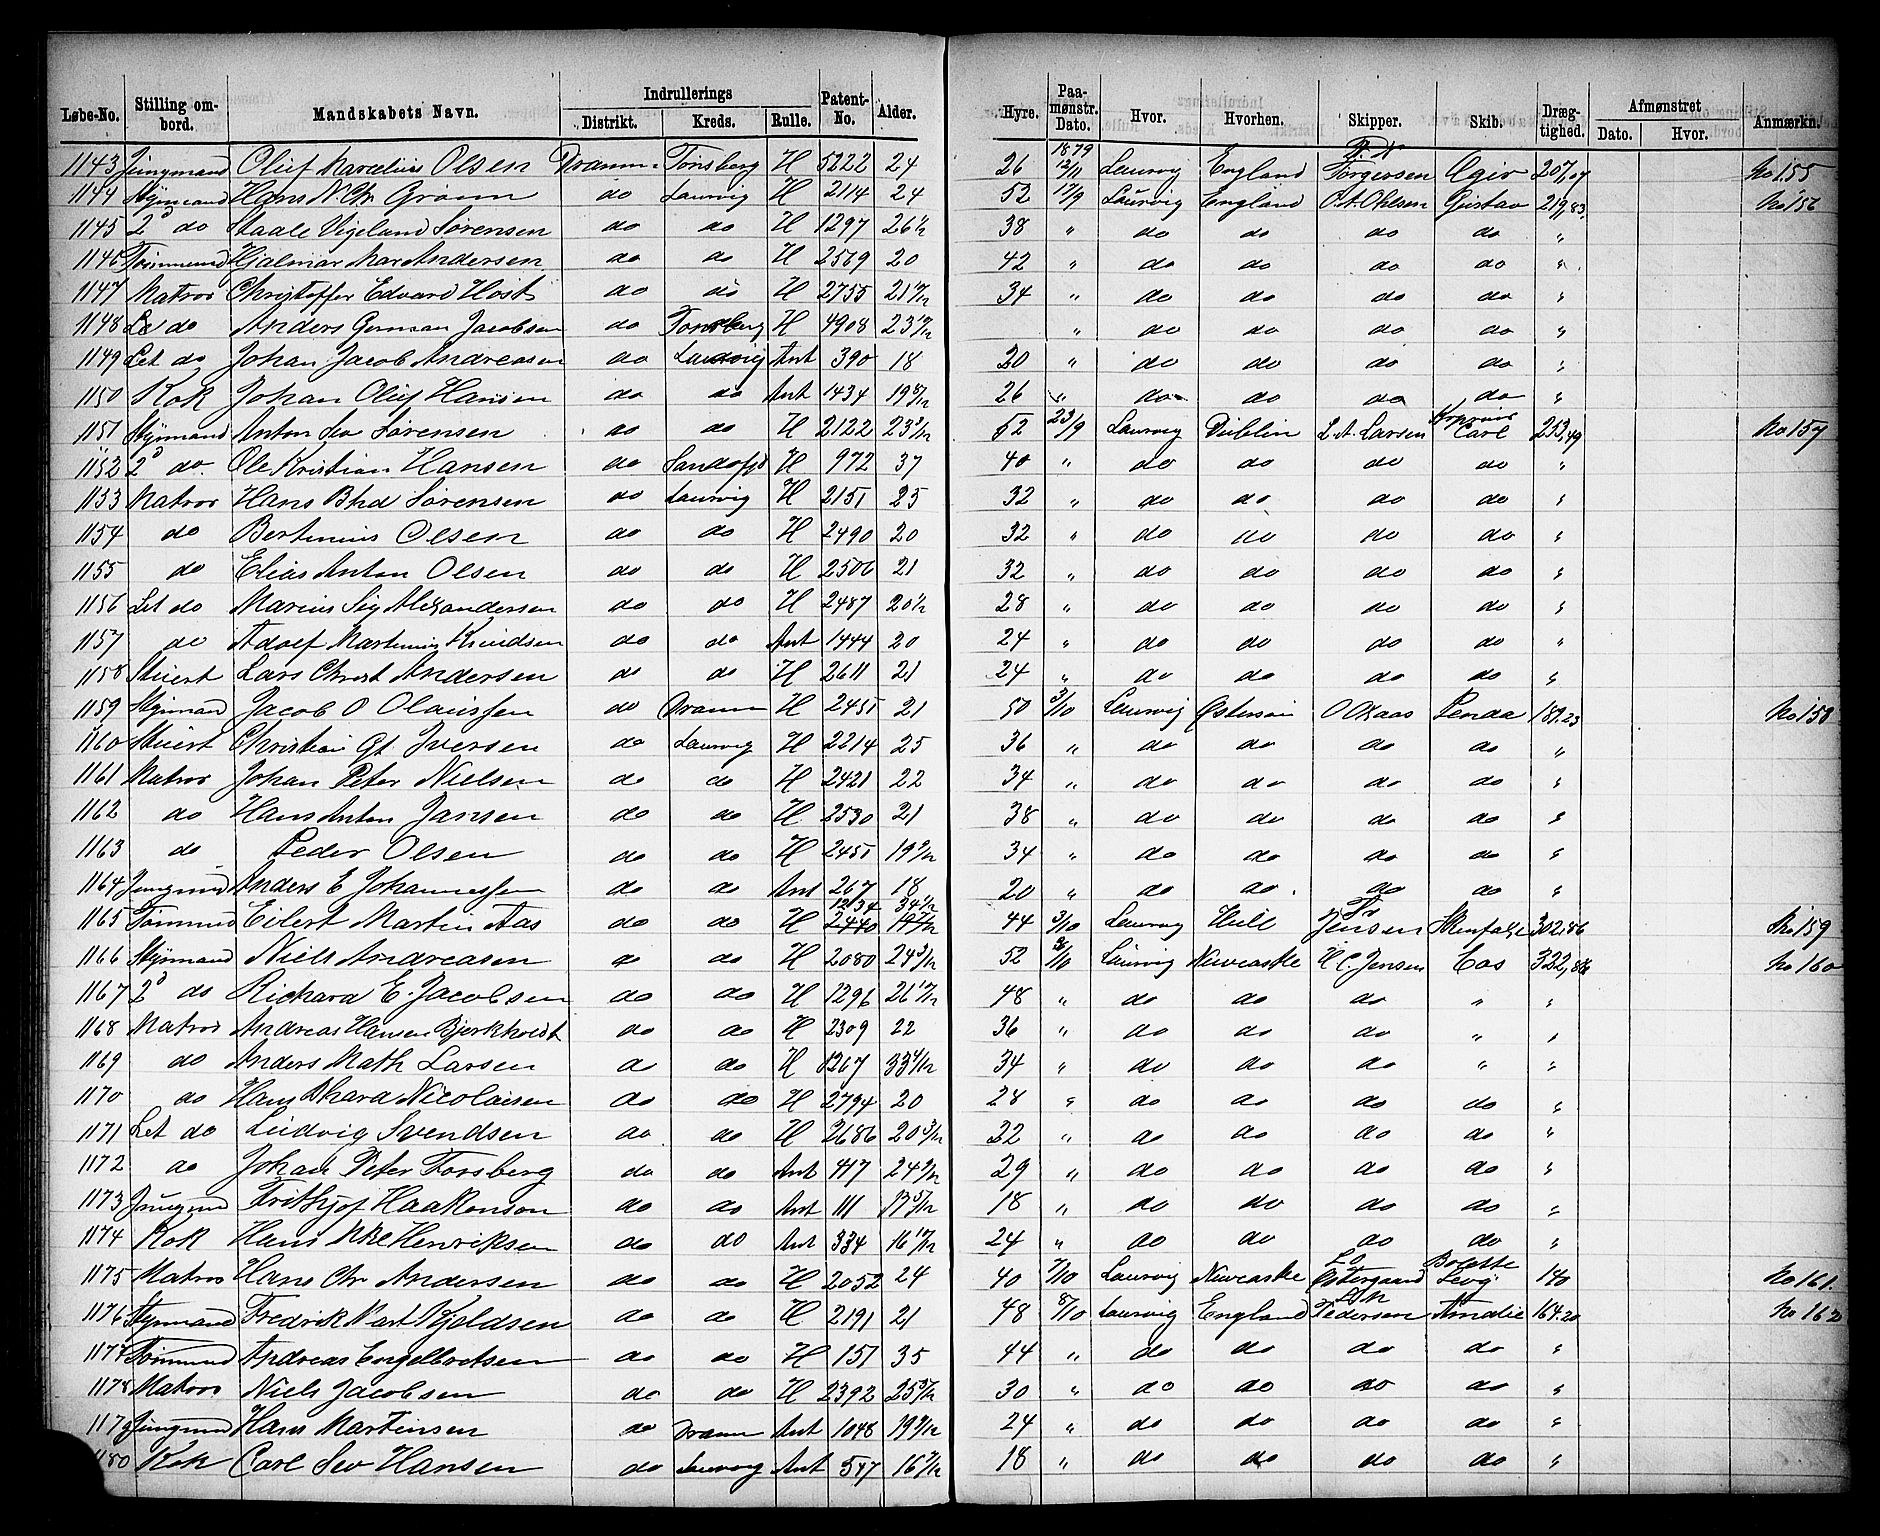 Løbe-No. | Stilling ombord. | Mandskabets Navn. | Indrullerings Distrikt. | Kreds. | Rulle. | Patent-No. | Alder. | Hyre. | Paamønstr. Dato. | Hvor. | Hvorhen. | Skipper. | Skib. | Drægtighed. | Afmønstret Dato. | Hvor. | Anmærkn.
1143 Jungmand Oluf Marcelius Olsen Dramm Tønsberg H 5222 24 26 1879 12/11 Laurvig England Torgersen Ægir 207,07 No 155
1144 Styrmand Hans N. Chr. Grønn do Laurvig H 2114 24 52 17/9 Laurvig England O. A. Ohlsen Gustav 219,83 No 156
1145 2d do Staale Vigeland Sørensen do do H 1297 26 1/2 38 " do do do do "
1146 Tømmermd Hjalmar Mar Andersen do do H 2569 20 42 " do do do do "
1147 Matros Christoffer Edvard Høst do do H 2755 21 34 " do do do do "
1148 Le do Anders German Jacobsen do Tønsberg H 4908 23 " do do do do "
1149 Let do Johan Jacob Andreasen do Laurvig Ant 390 18 20 " do do do do "
1150 Kok Johan Oluf Hansen do do Ant 1434 19 26 " do do do do "
1151 Styrmand Anton Sev Sørensen do do H 2122 23 52 23/9 Laurvig Dublin L. A. Larsen Carl 253,49 No 157
1152 2d do Ole Kristian Hansen do Sandefjd H 972 37 40 " do do do do "
1153 Matros Hans Bhd Sørensen do Laurvig H 2151 25 32 " do do do do "
1154 do Bertinius Olsen do do H 2490 20 32 " do do do do "
1155 do Elias Anton Olsen do do H 2506 21 32 " do do do do "
1156 Let do Marius Sig Alexandersen do do H 2487 20 1/2 28 " do do do do "
1157 do Adolf Martinius Knudsen do do Ant 1444 20 24 " do do do do "
1158 Stuert Lars Christ Andersen do do H 2611 21 24 " do do do do "
1159 Styrmand Jacob O Olaussen do Dramm H 2451 21 50 3/10 Laurvig Østersøen O Kaas Lenda 189.23 No 158
1160 Stuert Christian Gt. Iversen do Laurvig H 2214 25 36 " do do do do "
1161 Matros Johan Peter Nielsen do do H 2421 22 34 " do do do do "
1162 do Hans Anton Jansen do do H 2530 21 38 " do do do do "
1163 do Peder Olsen do do H 2451 19 34 " do do do do "
1164 Jungmd Anders E Johannessen do do Ant 267 18 20 " do do do do "
1165 Tømmrmd Eilert Martin Aas do do H 1234 44 3/10 Laurvig Hull Jensen 302,86 No 159
1166 Styrmand Niels Andreasen do do H 2080 24 52 Laurvig Newcastle H C Jensen Eos 322,86 No 160
1167 2d do Richard E. Jacobsen do do H 1296 26 48 " do do do " "
1168 Matros Andreas Hansen Bjerkholdt do do H 2309 22 36 " do do do " "
1169 do Anders Math Larsen do do H 1267 33 34 " do do do " "
1170 do Hans Nicolaisen do do H 2794 20 28 " do do do do "
1171 Let do Ludvig Svendsen do do H 2686 20 3/12 32 " do do do do "
1172 do Johan Peter Forsberg do do Ant 417 24 29 " do do do do "
1173 Jungmd Frithjof Haakonson do do Ant 111 17 5/12 18 " do do do do "
1174 Kok Hans Henriksen do do Ant 334 16 24 " do do do do "
1175 Matros Hans Chr Andersen do do H 2052 24 40 7/10 Laurvig Newcastle Østergaard Bolette 140 No 161.
1176 Styrmand Fredrik Mart Kjeldsen do do H 2191 21 48 8/10 Laurvig England Pedersen Amalie 164.20 No 162
1177 Tømmrmd Andreas Engelbretsen do do H 151 35 44 " do do do do "
1178 Matros Niels Jacobsen do do H 2392 25 30 " do do do do "
1179 Jungmd Hans Martinsen do Dramm Ant 1048 19 24 " do do do do "
1180 Kok Carl Sev Hansen do Laurvig Ant 547 16 18 " do do do do "